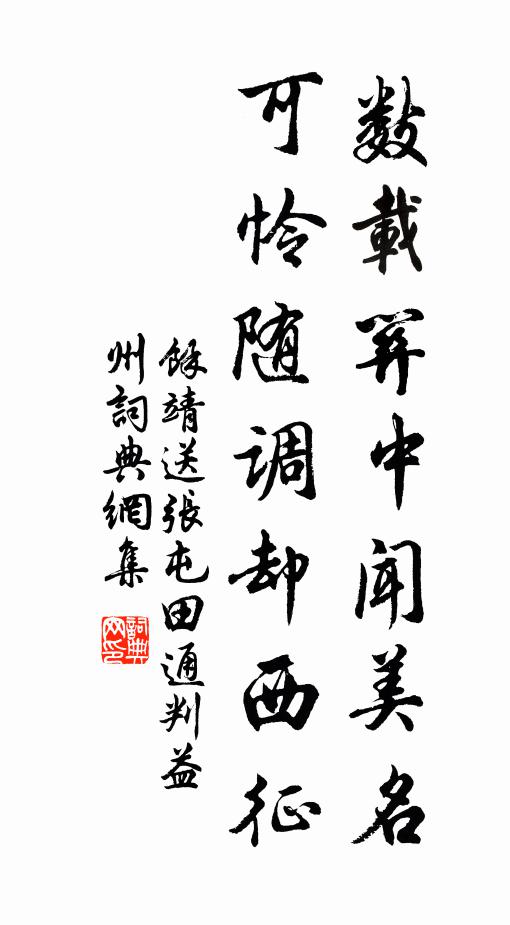 數載關中聞美名
可怜随調却西征
餘靖送張屯田通判益
州詞典網集
詞典网印